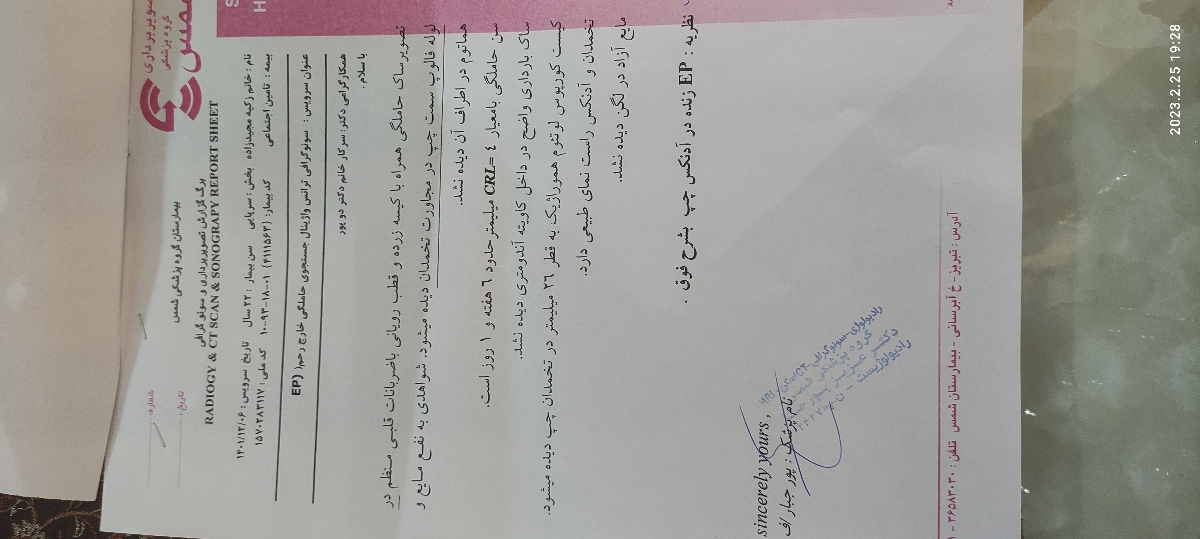 تصویربرداری
گروه پزشکی
شمس
شماره:
تاریخ:
بیمارستان گروه پزشکی شمس
برگ گزارش تصویربرداری و سونو گرافی
RADIOGY & CT SCAN & SONOGRAPY REPORT SHEET
نام : خانم زکیه مجیدزاده بخش : سرپایی سن بیمار : ۲۲ سال تاریخ سرویس : ۱۴۰۱/۱۲/۰۶
بیمه : تامین اجتماعی کد بیمار: (۴۱۱۱۵۶۳) ۱۰-۹۳-۱۸-۰۱ کد ملی : ۱۵۷۰۲۸۳۱۱۷
عنوان سرویس : سونوگرافی ترانس واژینال جستجوی حاملگی خارج رحم( EP)
همکارگرامی دکتر: سرکار خانم دکتر دو پور
با سلام.
تصویرساک حاملگی همراه با کیسه زرده و قطب رویانی باضربانات قلبی منظم در
لوله فالوپ سمت چپ در مجاورت تخمدان دیده میشود. شواهدی به نفع مایع و
هماتوم در اطراف آن دیده نشد.
سن حاملگی بامعیار CRL= ٤ میلیمتر حدود ٦ هفته و ١ روز است.
ساک بارداری واضح در داخل کاویته آندومتری دیده نشد.
کیست کورپوس لوتئوم هموراژیک به قطر ٢٦ میلیمتر در تخمدان چپ دیده میشود.
تخمدان و آدنکس راست نمای طبیعی دارد.
مایع آزاد در لگن دیده نشد.
نظریه : EP زنده در آدنکس چپ بشرح فوق .
sincerely yours,
نام پزشک : پور جبار اف
رادیولوژی-سونوگرافی-CTاسکن-MRI
گروه پزشکی شمس
دکتر عزیز پور جبار
رادیولوژیست -
آدرس : تبریز - خ آبرسانی - بیمارستان شمس تلفن : ۳۶۵۸۳۰۳۰ - ۱
2023.2.25 19:28